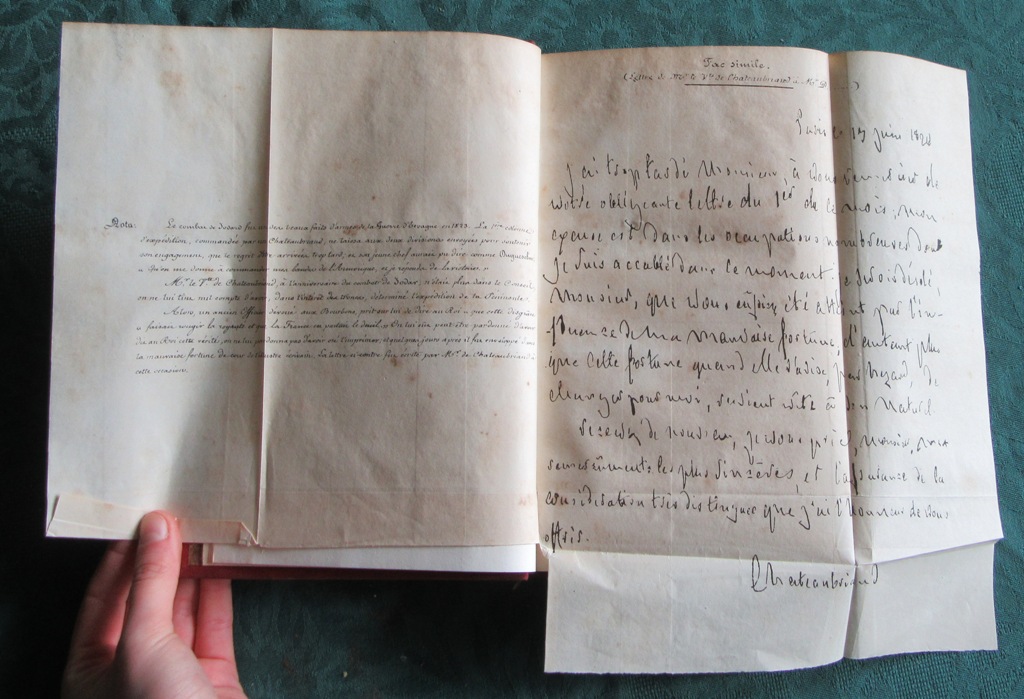 Nota.
Le combat de Dodar fut un des beaux faits d'armes de la Guerre d'Espagne en 1823. La colonne
d'expédition, commandée par un Chateaubriand, ne laissa aux deux divisions envoyées pour soutenir
son engagement, que le regret d'être arrivées trop tard, et son jeune chef aurait pu dire comme Duguesclin
M. le Vte de Chateaubriand, à l'anniversaire du combat de Dodar, n'était plus dans le Conseil,
on ne lui tint nul compte d'avoir, dans l'intérêt des trônes, déterminé l'expédition de la Péninsule.
Alors, un ancien officier dévoué aux Bourbons, prit sur lui de dire au Roi que cette disgrâce
faisait rougir la royauté et que la France en portait le deuil. On lui eut peut être pardonné d'avoir
dit au Roi cette vérité, on ne lui pardonna pas d'avoir
la mauvaise fortune. La lettre ci-contre fut écrite par Mr. de Chateaubriand à
cette occasion.
Fac simile.
(Lettre de Mr. le Vte de Chateaubriand à Mr. D
Paris ce 19 juin 1828
j'ai trop tardé Monsieur, à vous remercier de
votre obligeante lettre du 1er de ce mois; mon
excuse est dans les occupations nombreuses dont
je suis accablé dans ce moment. je suis désolé,
Monsieur, que vous ayez été atteint par l'in-
fluence de ma mauvaise fortune, d'autant plus
que cette fortune quand elle s'avise, par hazard, de
changer pour moi, revient vite à son naturel.
Recevez de nouveau, je vous prie, monsieur, mes
remerciements les plus sincères, et l'assurance de la
considération très distinguée que j'ai l'honneur de vous
offrir.
Chateaubriand